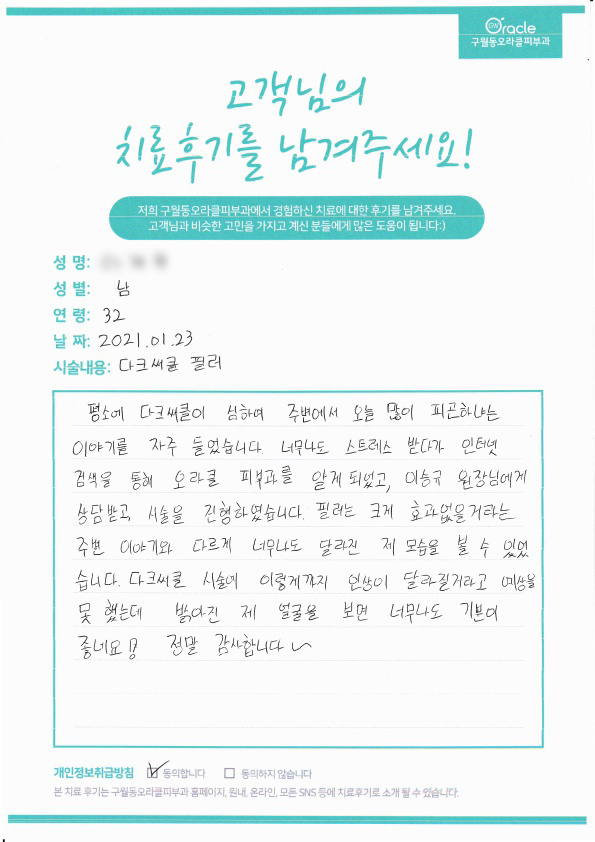 Oracle
구월동오라클피부과
고객님의
치료후기를 남겨주세요!
저희 구월동오라클피부과에서 경험하신 치료에 대한 후기를 남겨주세요.
고객님과 비슷한 고민을 가지고 계신 분들에게 많은 도움이 됩니다:)
성 명:
성 별: 남
연 령: 32
날 짜: 2021.01.23
시술내용: 다크써클 필러
평소에 다크써클이 심하여 주변에서 오늘 많이 피곤하냐는
이야기를 자주 들었습니다. 너무나도 스트레스 받다가 인터넷
검색을 통해 오라클 피부과를 알게 되었고, 이승규 원장님에게
상담받고 시술을 진행하였습니다. 필러는 크게 효과없을거라는
주변 이야기와 다르게 너무나도 달라진 제 모습을 볼 수 있었
습니다. 다크써클 시술에 이렇게까지 인상이 달라질거라고 예상을
못 했는데 밝아진 제 얼굴을 보면 너무나도 기분이
좋네요!! 정말 감사합니다~
개인정보취급방침 동의합니다 동의하지 않습니다
본 치료 후기는 구월동오라클피부과 홈페이지, 원내, 온라인, 모든 SNS 등에 치료후기로 소개 될 수 있습니다.